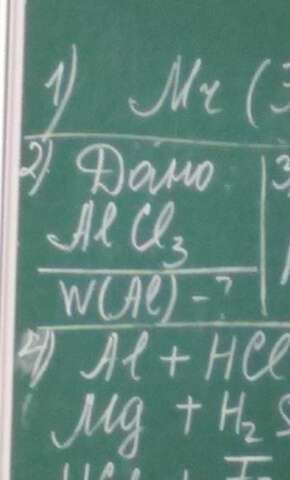 1) Mr (
2) Дано 3
AlCl₃
W(Al) - ?
4) Al + HCl
Mg + H₂S
HCl +